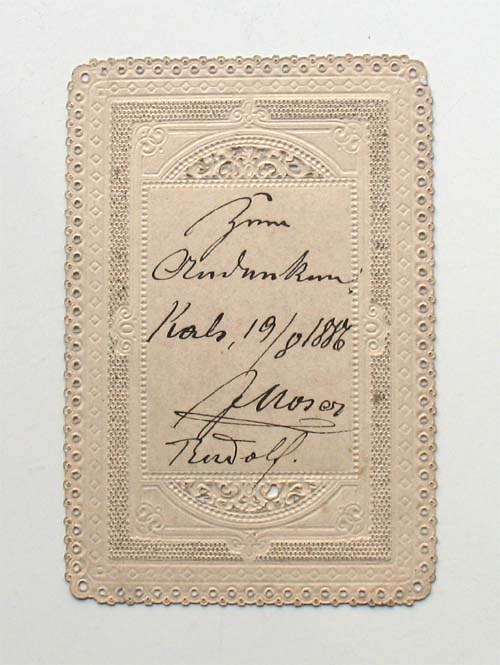 Zum
Andenken!
Kals, 19/8 1886
J Moser
Rudolf.